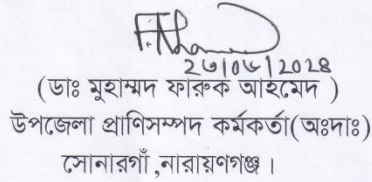 ২৬/০৬/২০২৪
(ডাঃ মুহাম্মদ ফারুক আহমেদ )
উপজেলা প্রাণিসম্পদ কর্মকর্তা(অঃদাঃ)
সোনারগাঁ ,নারায়ণগঞ্জ ।